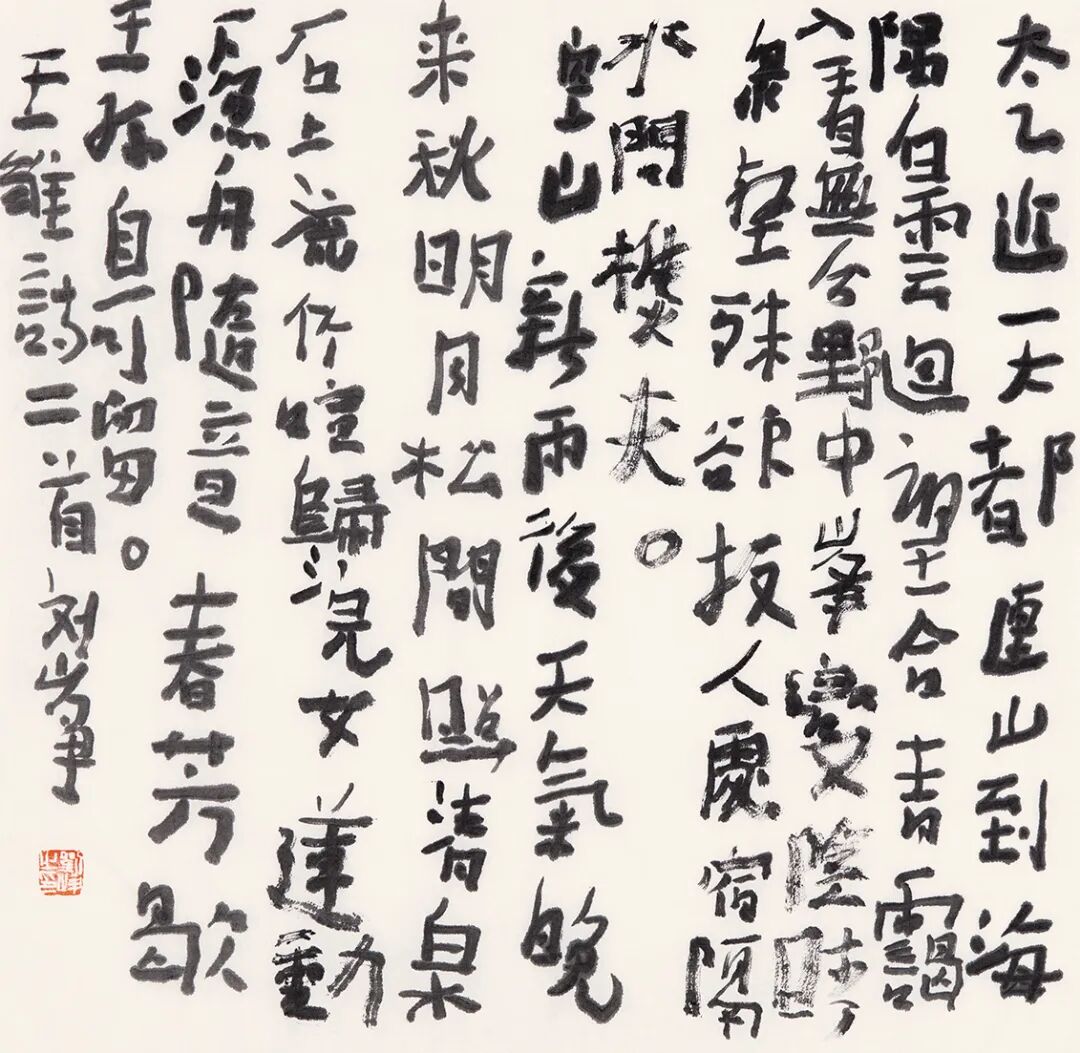 太乙近天都連山到海
隅白雲迴望合青靄
入看無分野中峯變陰晴
衆壑殊欲投人處宿隔
水問樵夫。
空山新雨後天氣晚
来秋明月松間照清泉
石上流竹喧歸浣女蓮動
下漁舟隨意春芳歇
王孫自可留。
王維詩二首 刘